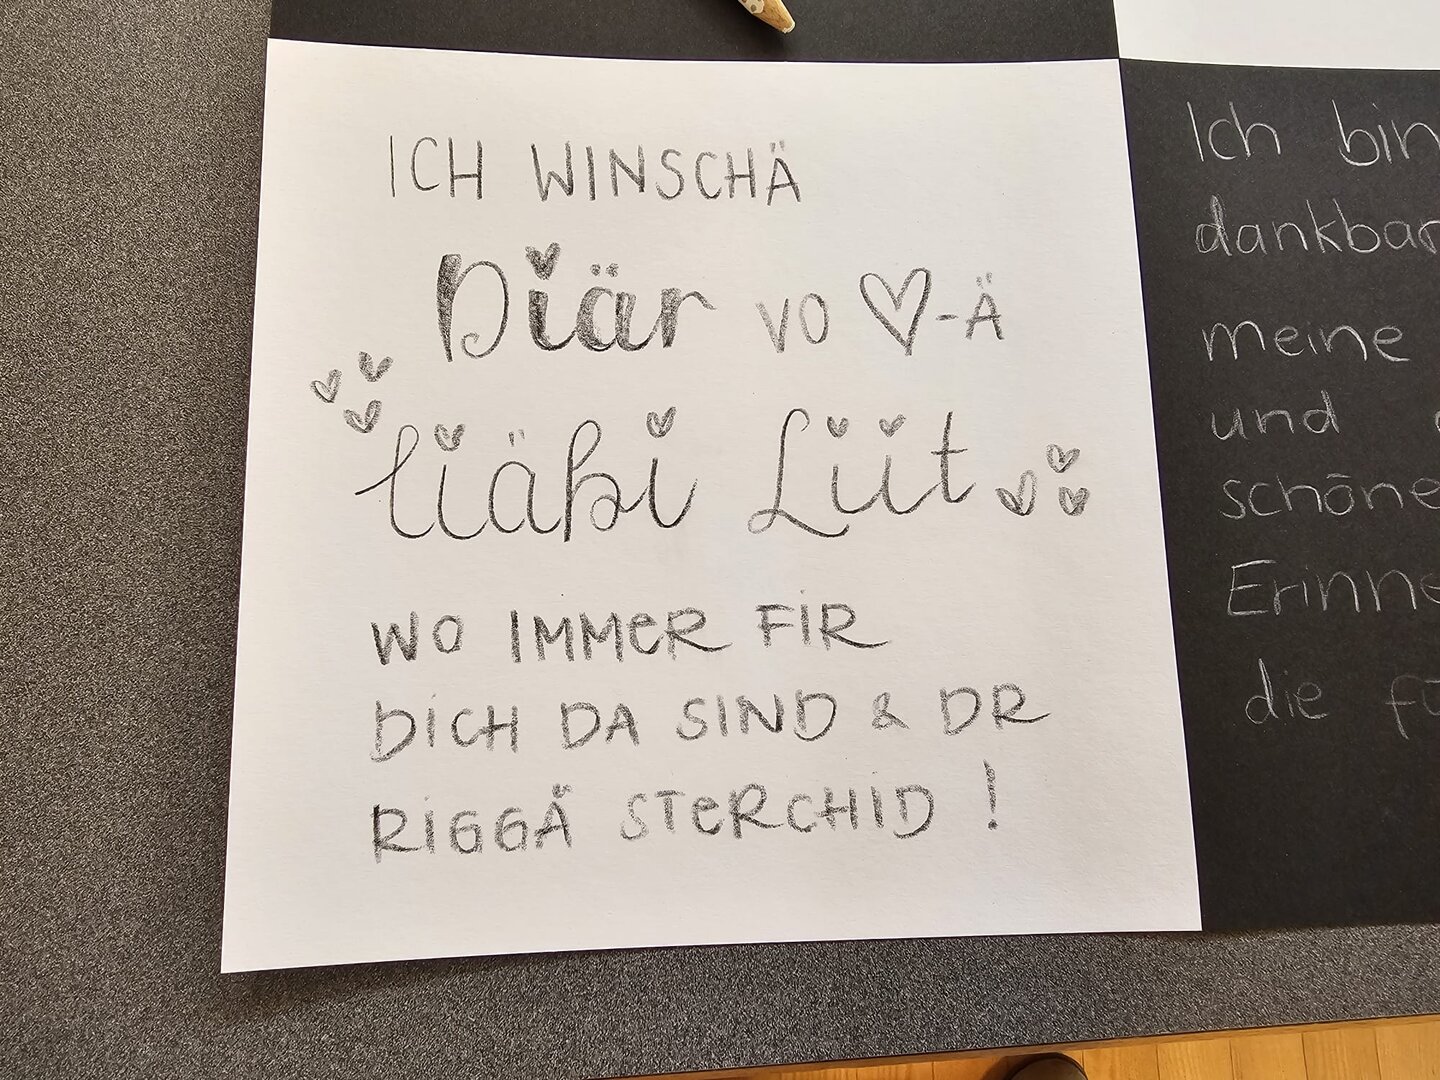 ICH WINSCHÄ
Diär VO ♡-Ä
liäbi Liit
WO IMMER FIR
DICH DA SIND & DR
RIGGÄ STERCHID !
Ich bin
dankbar
meine
und
schöne
Erinne
die